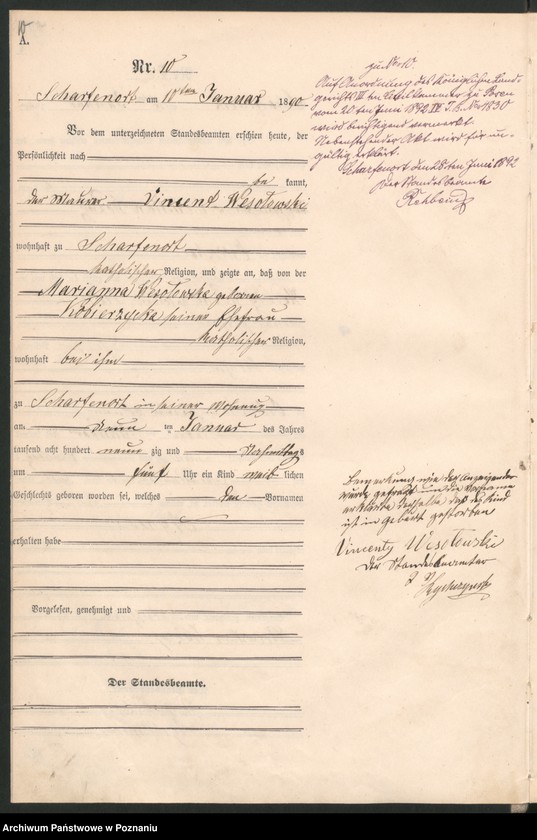 10
A.
Nr. 10
Scharfenort am 10ten Januar 1890
Vor dem unterzeichneten Standesbeamten erschien heute, der
Persönlichkeit nach
be kannt,
der Maurer Vincent Wesołowski
wohnhaft zu Scharfenort
katholischer Religion, und zeigte an, daß von der
Marianna Wesołowska geborene
Kobierzycka seiner Ehefrau
katholischer Religion,
wohnhaft bei ihm
zu Scharfenort in seiner Wohnung
am neun ten Januar des Jahres
tausend acht hundert neun zig und Nachmittags
um fünf Uhr ein Kind weib lichen
Geschlechts geboren worden sei, welches den Vornamen
erhalten habe
Vorgelesen, genehmigt und
Der Standesbeamte.
zu Nr 10
Auf Anordnung des Königlichen Land-
gerichts IIten Civilkammer zu Posen
vom 20ten Juni 1892 No 1830
wird berichtigend vermerkt
Nebenstehender Akt wird für un-
gültig erklärt.
Scharfenort den 28ten Juni 1892
Der Standesbeamte
Rehband
Bemerkung wie der Anzeigender
wurde gefragt um die Vorname
erklärte derselbe daß das Kind
ist in geburt gestorben
Vincenty Wesołowski
Der Standesbeamter
Archiwum Państwowe w Poznaniu